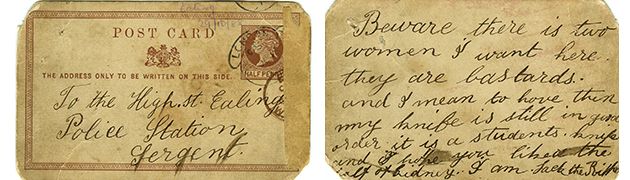 Ealing
POST CARD
THE ADDRESS ONLY TO BE WRITTEN ON THIS SIDE.
HALF PENNY
To the High. st. Ealing
Police Station
Sergent.
Beware there is two
women I want here
they are bastards.
and I mean to have them
my knife is still in good
order it is a students knife
and I hope you liked the
half Kidney. I am Jack the Ripper